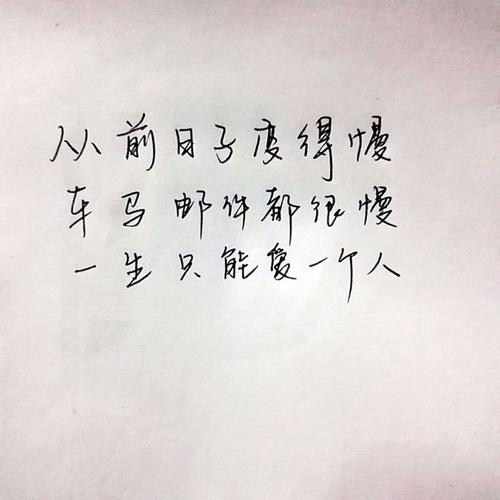 从前日子变得慢
车马邮件都很慢
一生只能爱一个人